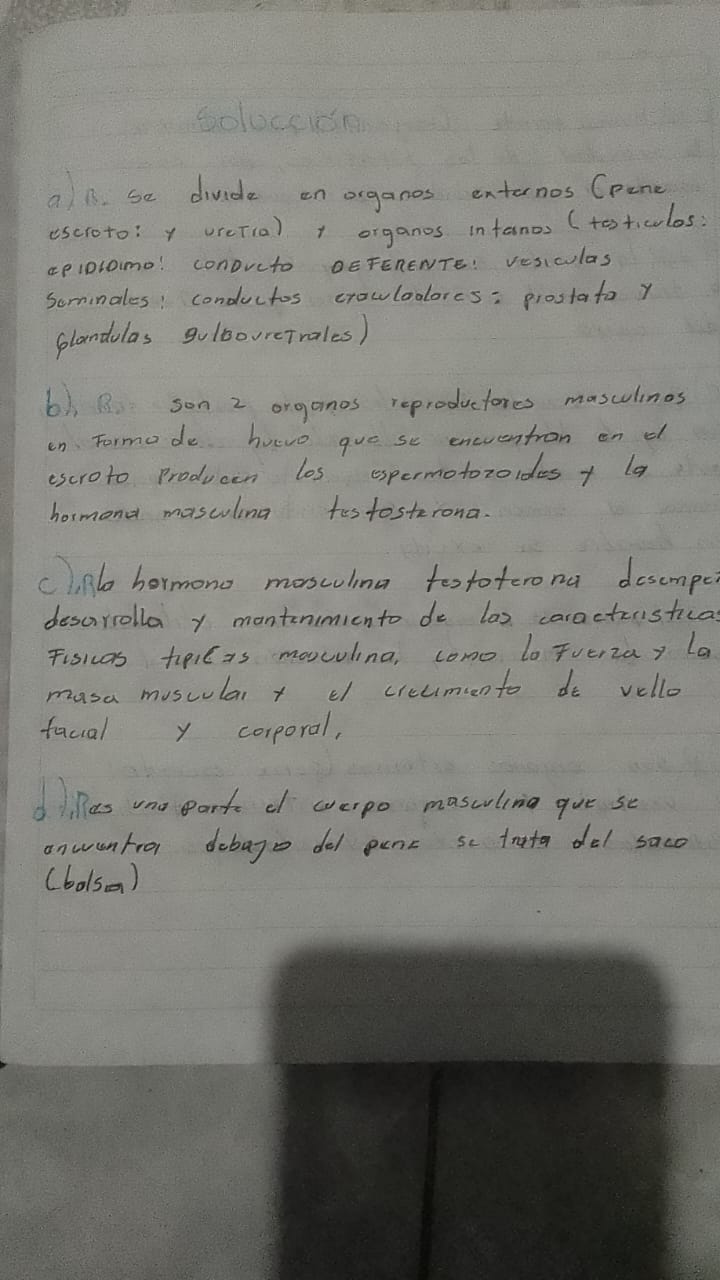 Solucción
a) R. se divide en organos externos (pene
escroto: y uretra) y organos internos (testiculos:
epididimo: conducto DEFERENTE: vesiculas
Seminales: conductos : prostata y
glandulas gulbouretrales)
b), R. son 2 organos reproductores masculinos
en Forma de huevo que se encuentran en el
escroto Producen los espermatozoides y la
hormona masculina testosterona.
c), R la hormona masculina testoterona desempeñ
desarrolla y mantenimiento de las caracteristicas
Fisicas tipicas masculina, como la Fuerza y la
masa muscular y el crecimiento de vello
facial y corporal,
d), R es una parte el cuerpo masculino que se
encuentra debago del pene se trata del saco
(bolsa)